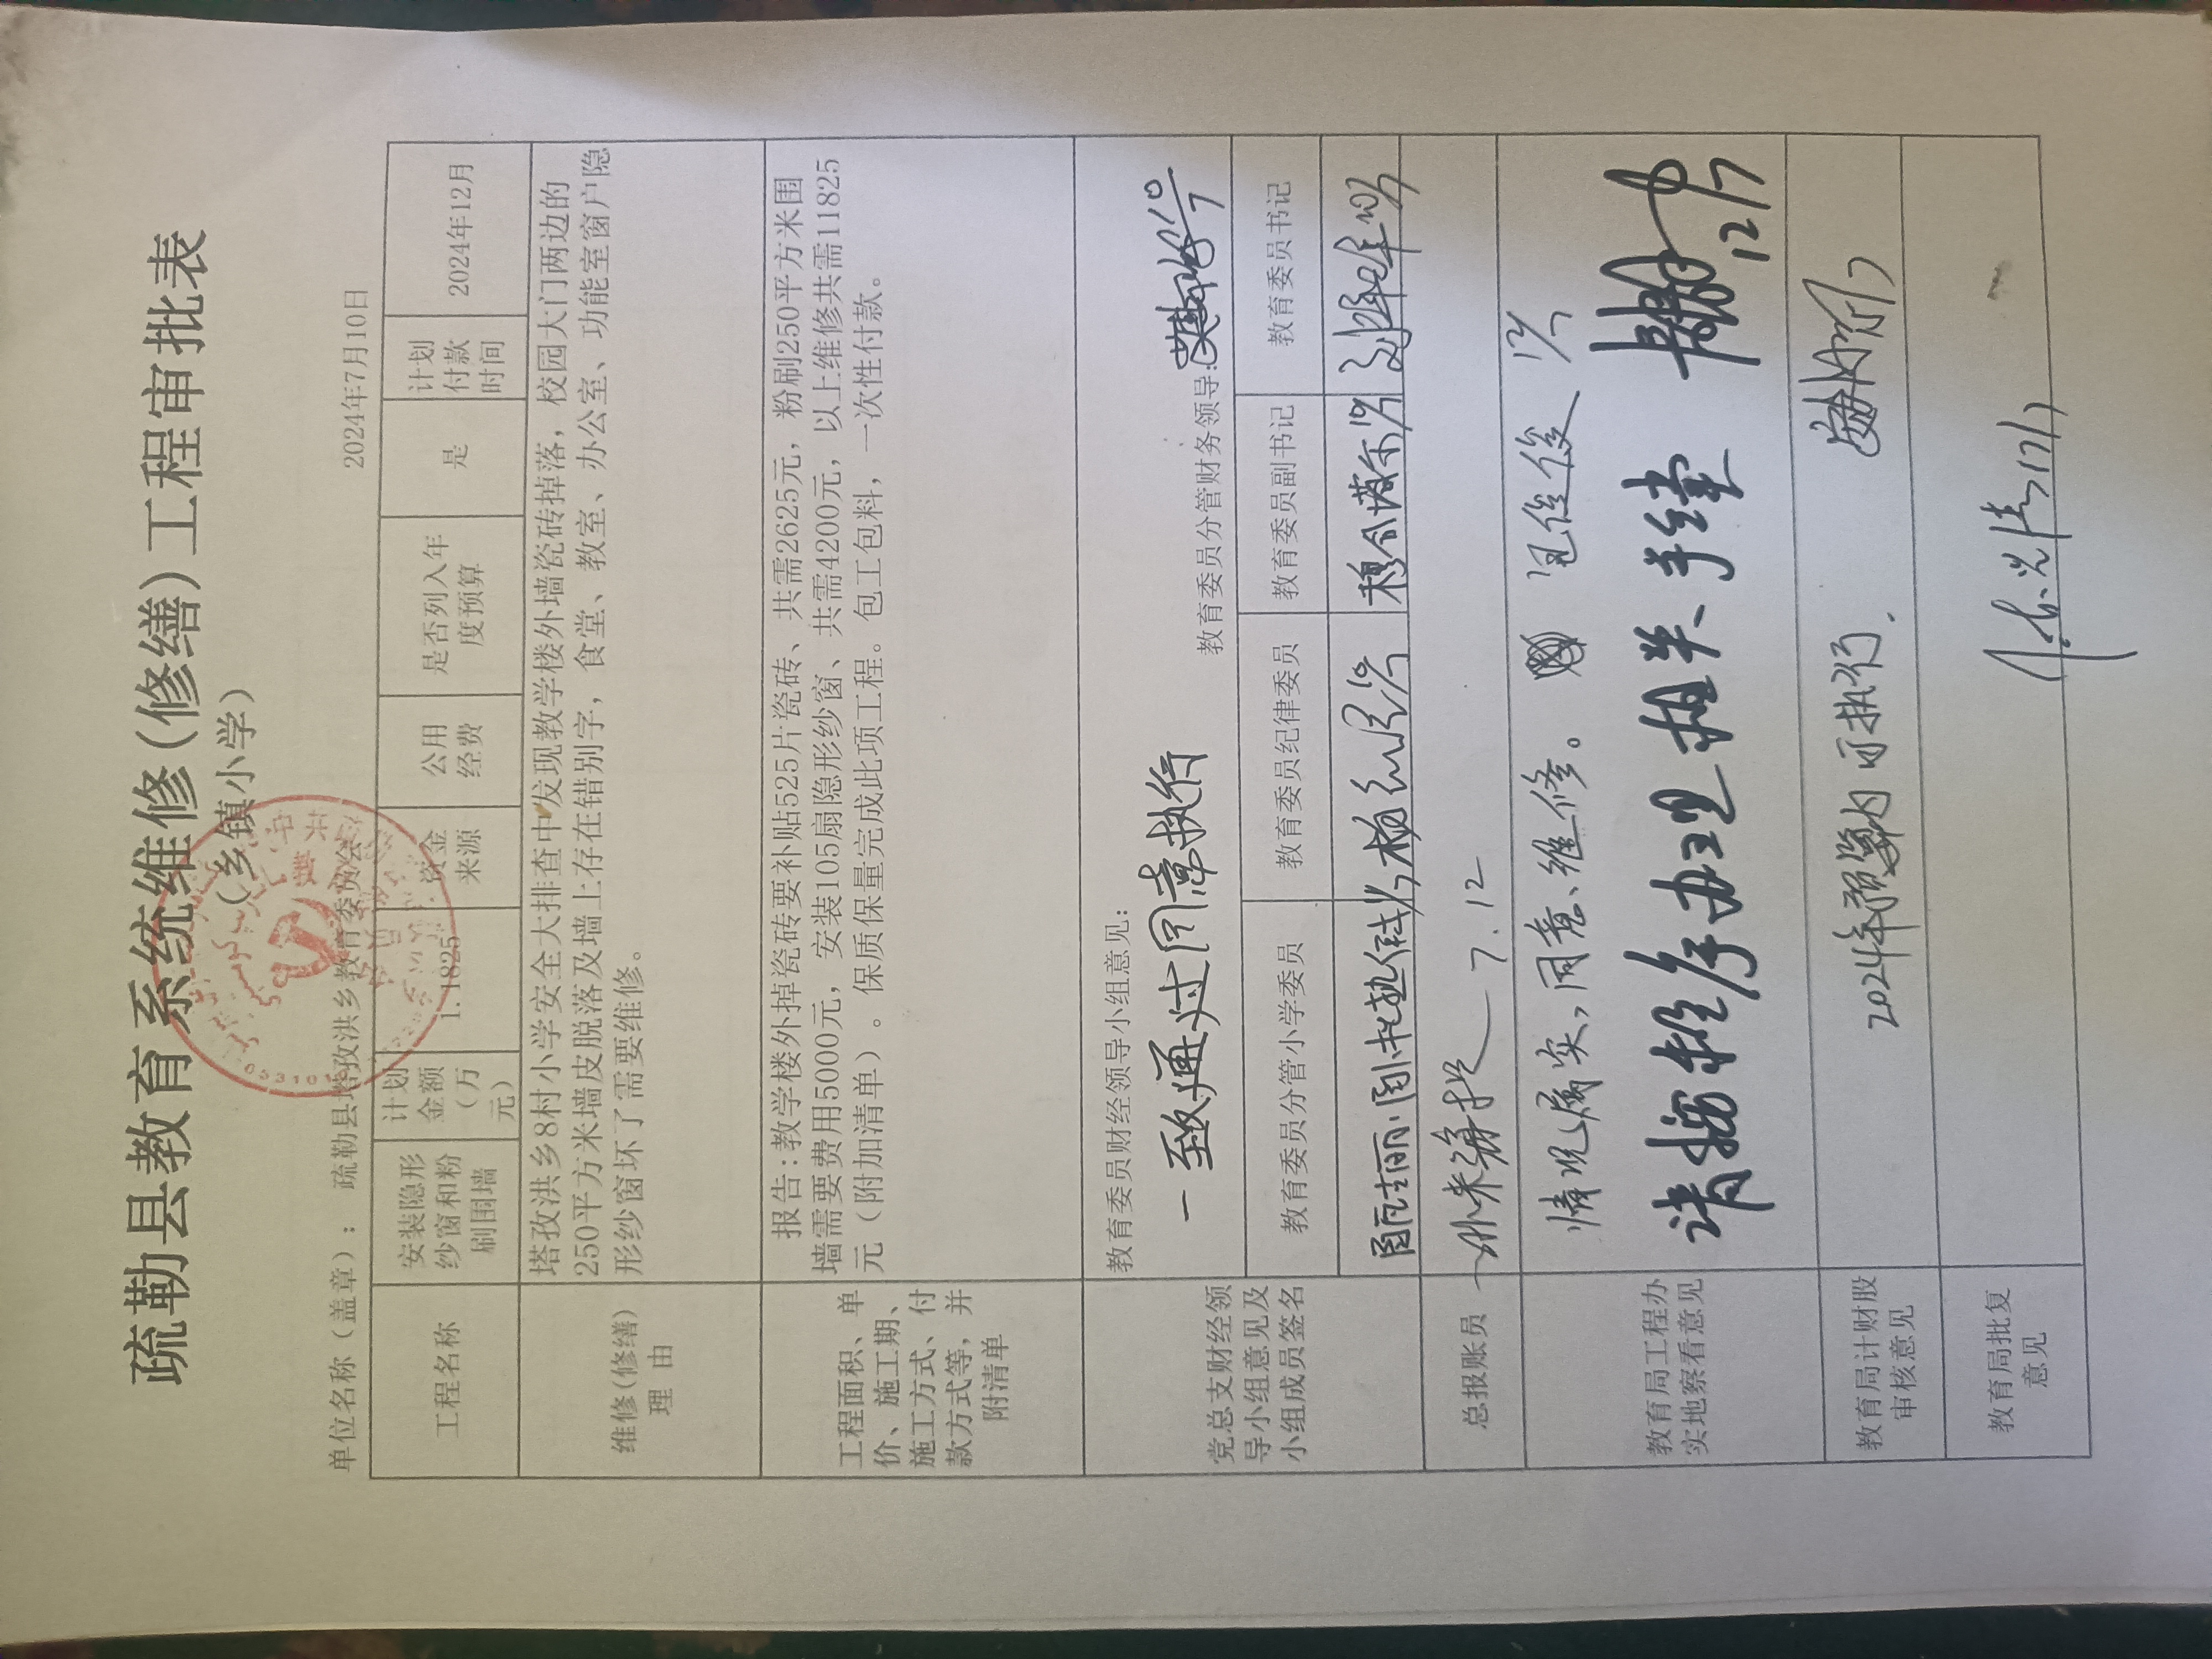 疏勒县教育系统维修(修缮)工程审批表
(乡镇小学)
单位名称(盖章): 疏勒县塔孜洪乡教育委员会 2024年7月10日
工程名称 安装隐形纱窗和粉刷围墙 计划金额(万元) 1.1825 资金来源 公用经费 是否列入年度预算 是 计划付款时间 2024年12月
维修(修缮)理 由
塔孜洪乡8村小学安全大排查中发现教学楼外墙瓷砖掉落,校园大门两边的
250平方米墙皮脱落及墙上存在错别字,食堂、教室、办公室、功能室窗户隐
形纱窗坏了需要维修。
工程面积、单价、施工期、施工方式、付款方式等,并附清单
报告:教学楼外掉瓷砖要补贴525片瓷砖、共需2625元,粉刷250平方米围
墙需要费用5000元,安装105扇隐形纱窗、共需4200元,以上维修共需11825
元(附加清单)。保质保量完成此项工程。包工包料,一次性付款。
党总支财经领导小组意见及小组成员签名
教育委员财经领导小组意见:
一致通过同意执行
教育委员分管财务领导:
教育委员分管小学委员 教育委员纪律委员 教育委员副书记 教育委员书记
总报账员 7.12
教育局工程办实地察看意见
情况属实,同意维修。
请按程序办理相关手续 12/7
教育局计财股审核意见
2024年预算内可执行.
教育局批复意见